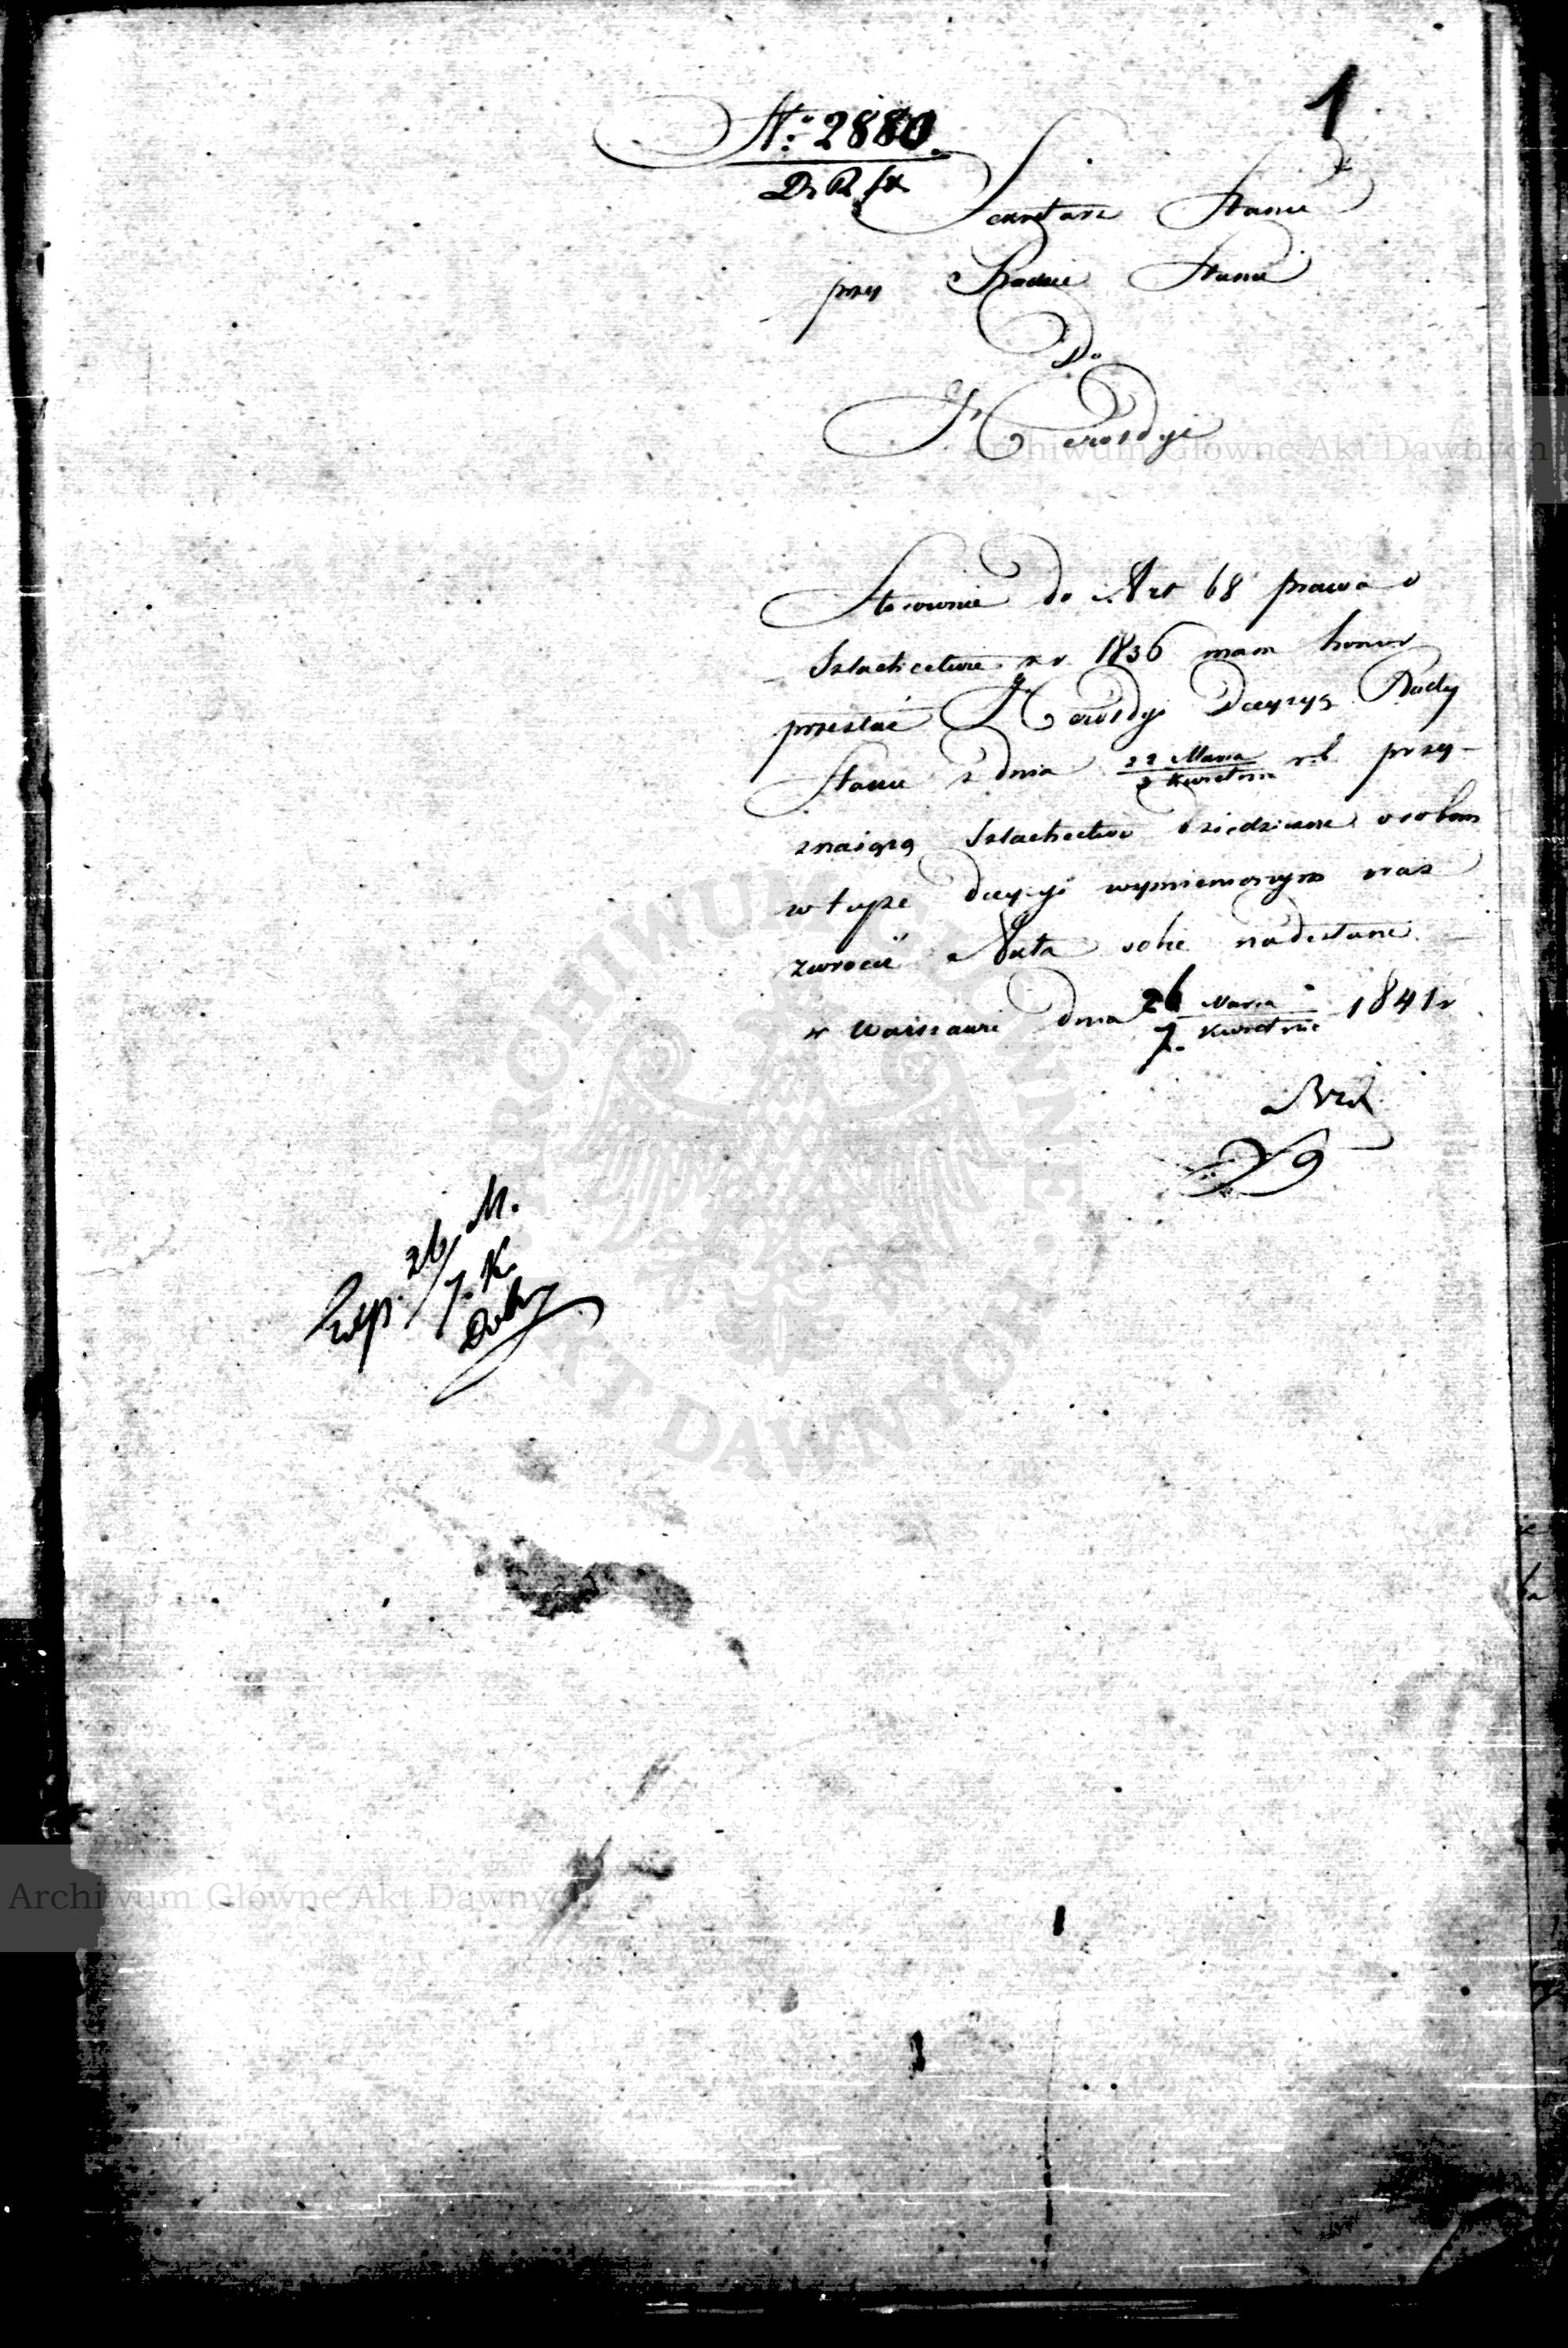 1
N: 2880.
D. R. St.
Sekretarz Stanu
przy Radzie Stanu
Do
Heroldyi
Stosownie do Art 68 prawa o
Szlachectwie z r. 1836 mam honor
przesłać Heroldyi Decyzyą Rady
Stanu z dnia 22 Marca / 3 Kwietnia r. b. przy-
znaiącą Szlachectwo dziedziczne osobom
w tejże decyzyi wymienionym oraz
zwrócić Akta sobie nadesłane.
w Warszawie dnia 26 Marca / 7. Kwietnia 1841 r
26/7. M. K.
Archiwum Główne Akt Dawnych
ARCHIWUM GŁÓWNE AKT DAWNYCH
Archiwum Główne Akt Dawnych